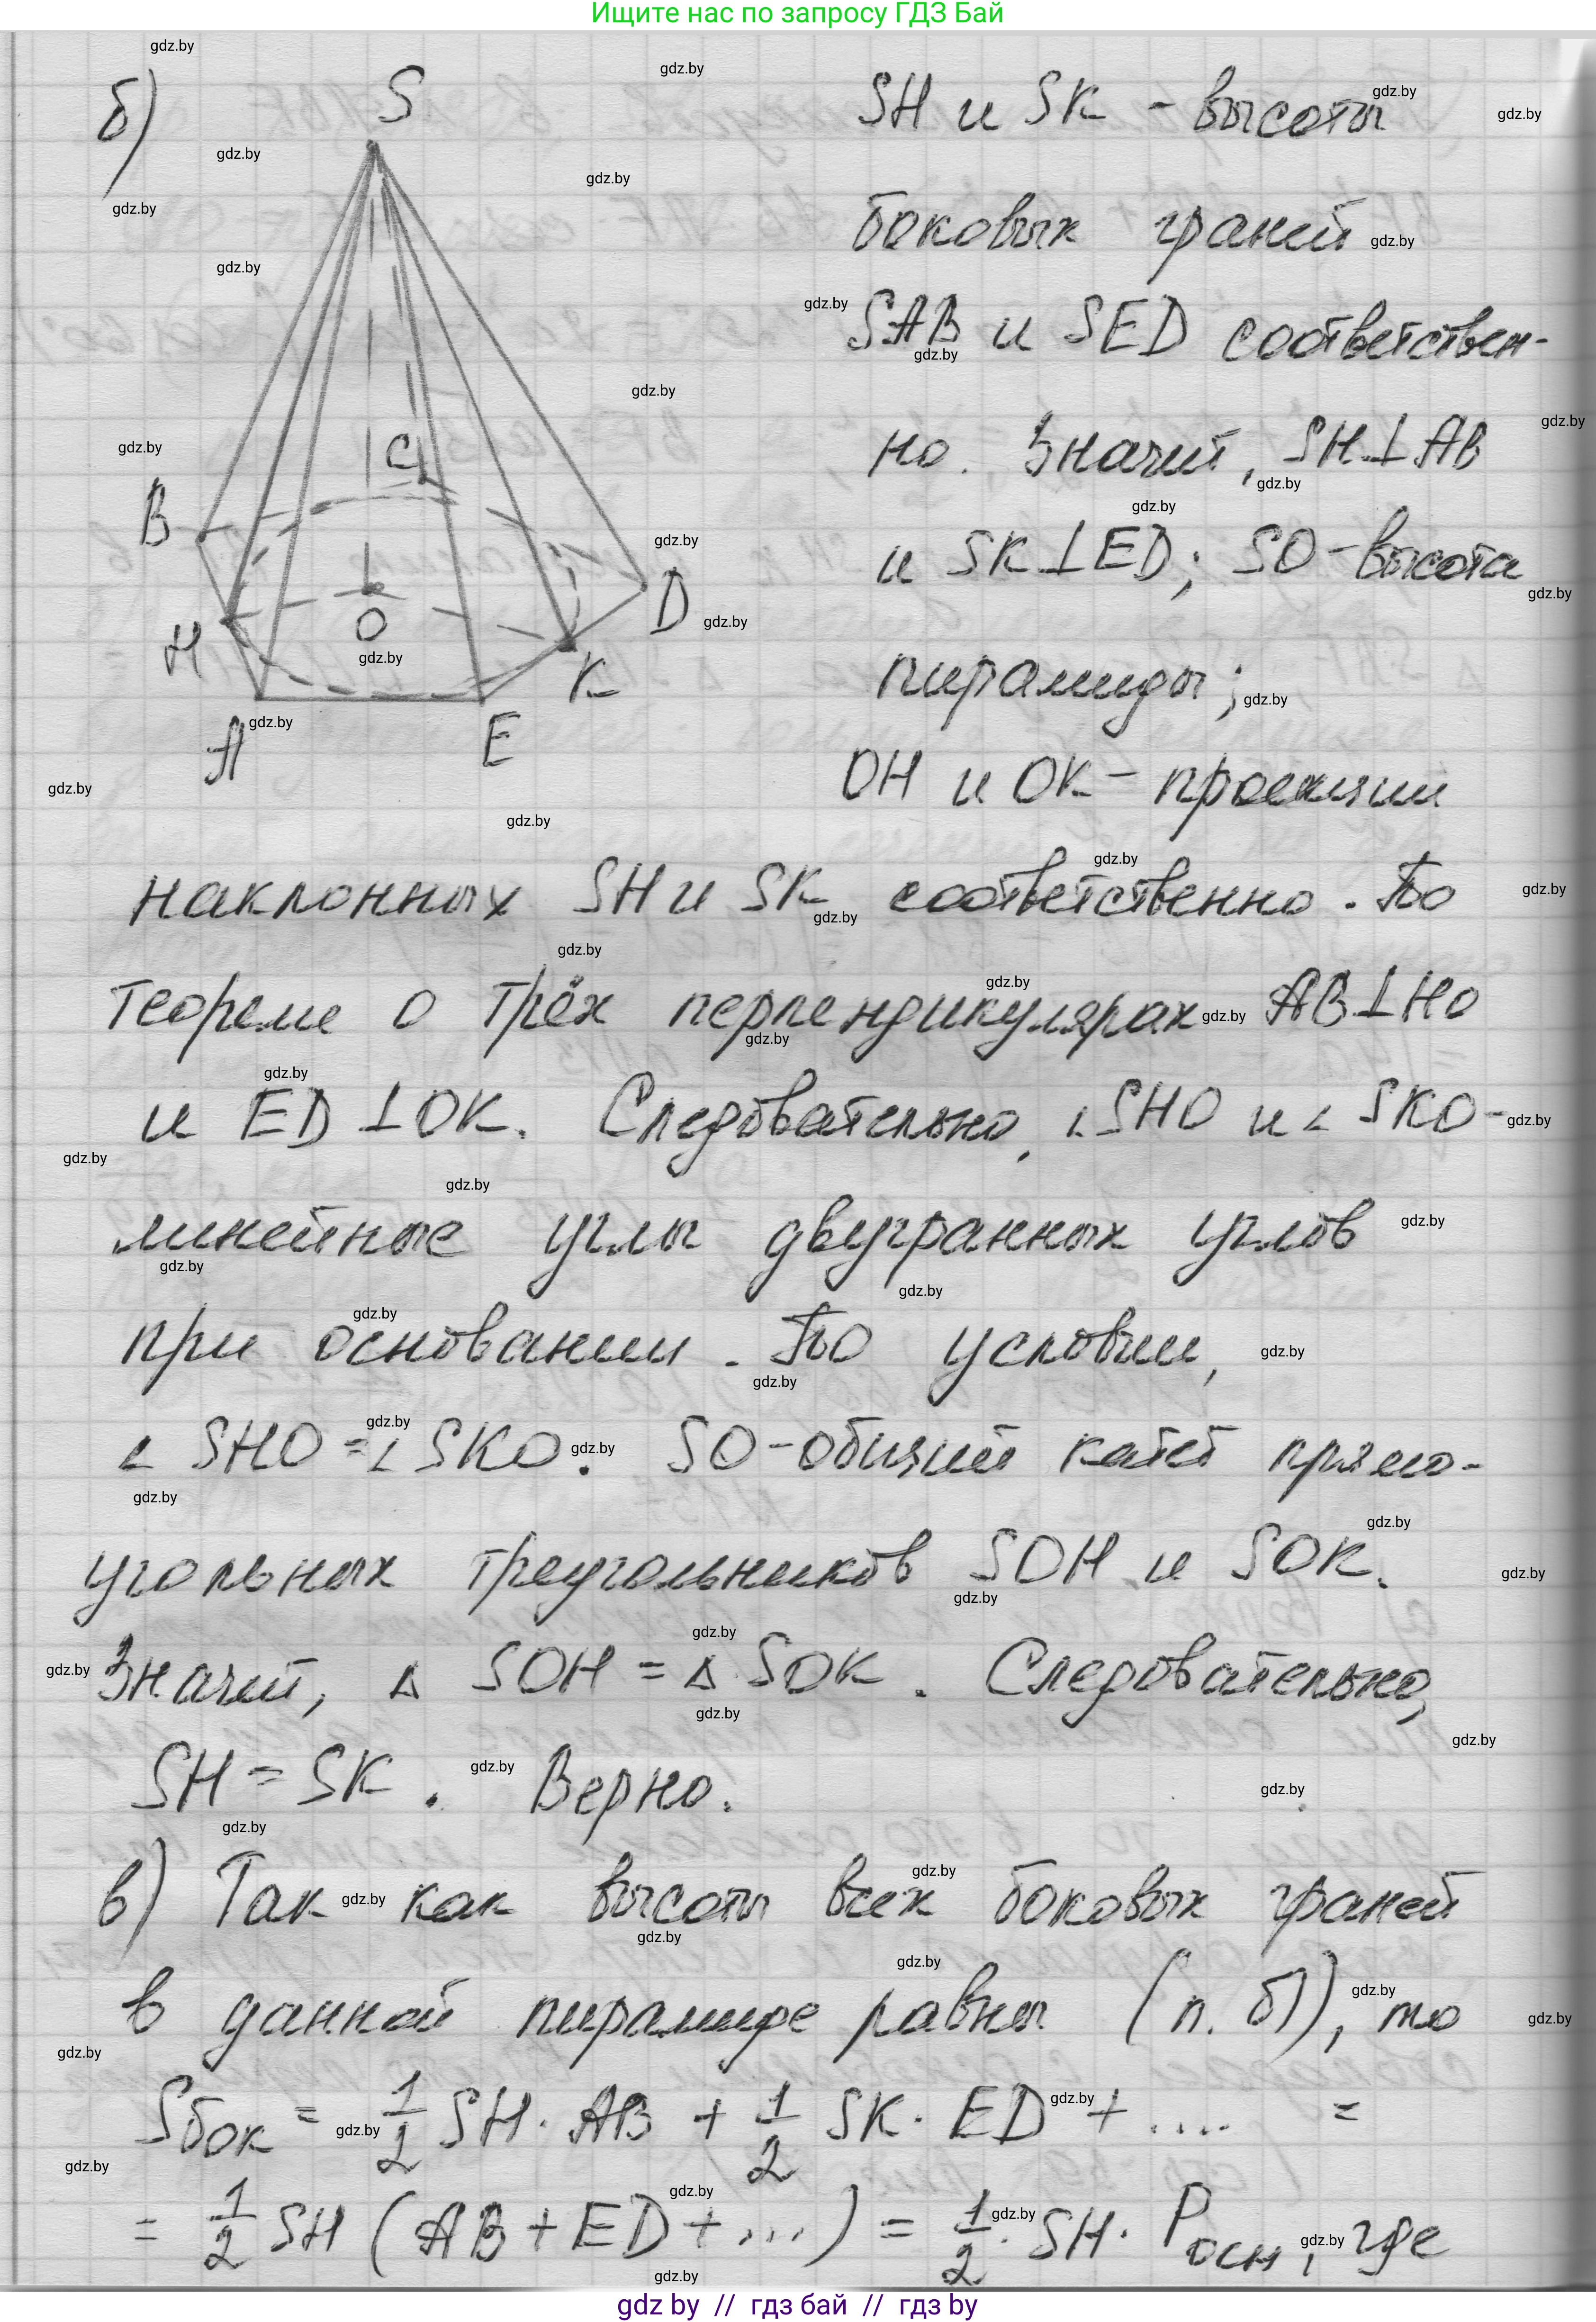 Ищите нас по запросу ГДЗ Бай
б)
S
B
C
D
H
O
K
A
E
SH и SK - высоты
боковых граней
SAB и SED соответствен-
но. Значит, SH⊥AB
и SK⊥ED; SO-высота
пирамиды;
OH и OK - проекции
наклонных SH и SK соответственно. По
теореме о трёх перпендикулярах AB⊥HO
и ED⊥OK. Следовательно, ∠SHO и ∠SKO-
линейные углы двугранных углов
при основании. По условии,
∠SHO=∠SKO. SO-общий катет прямо-
угольных треугольников SOH и SOK.
Значит, Δ SOH = Δ SOK. Следовательно,
SH = SK. Верно.
в) Так как высоты всех боковых граней
в данной пирамиде равны (п. б)), то
Sбок = 1/2 SH · AB + 1/2 SK · ED + .... =
= 1/2 SH (AB + ED + ...) = 1/2 · SH · Pосн, где
gdz by // гдз бай // гдз by